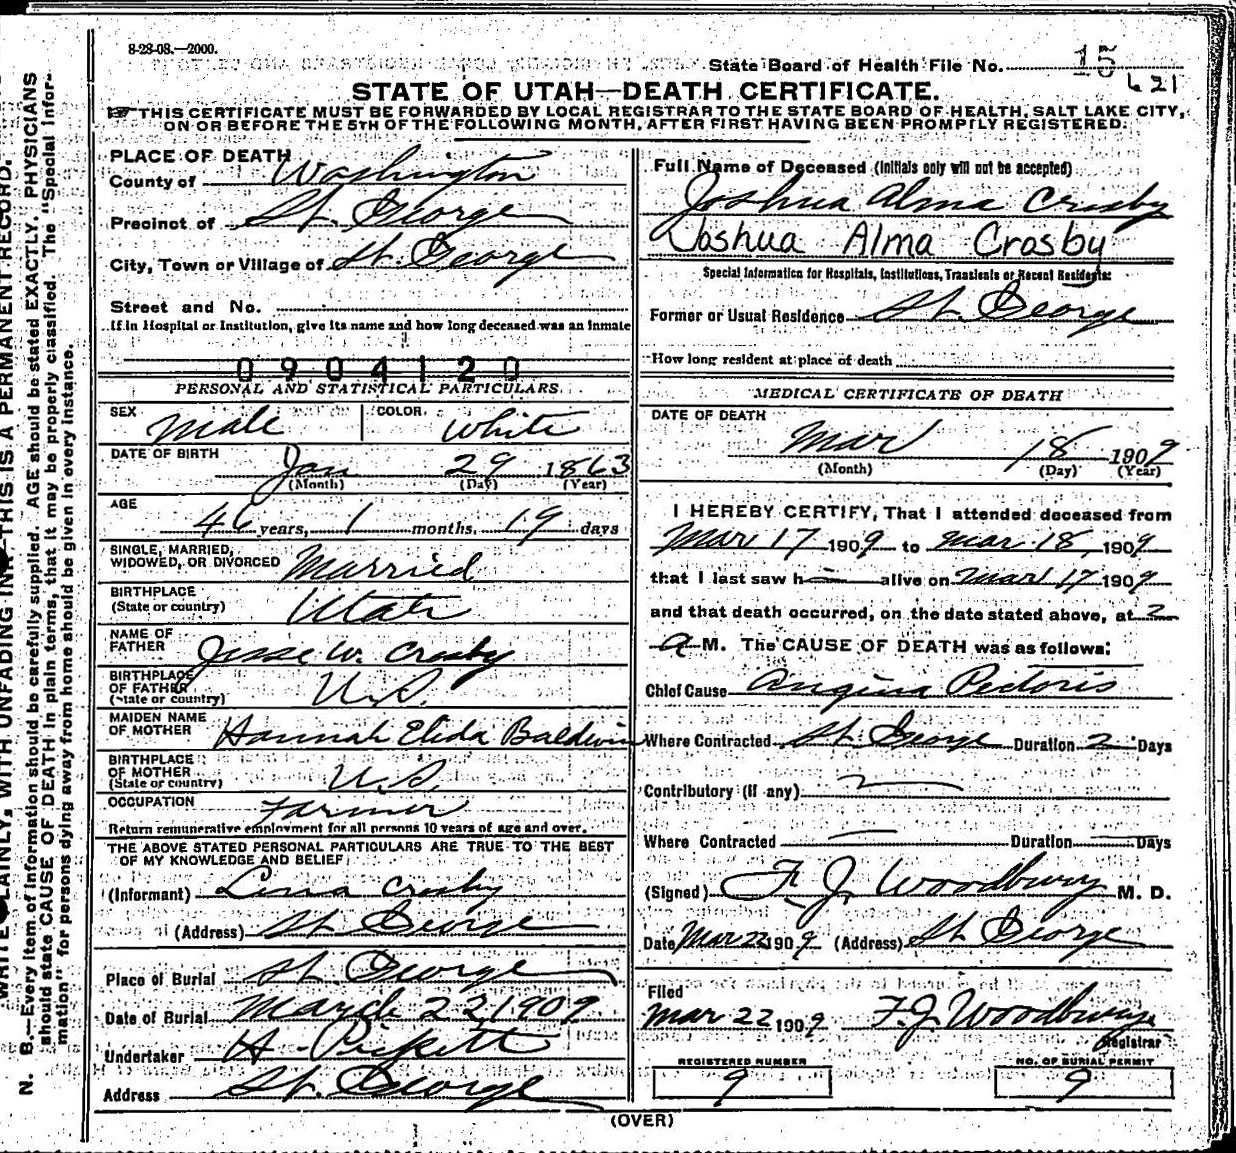 8-28-08.—2000.
State Board of Health File No. 15
621
STATE OF UTAH—DEATH CERTIFICATE.
☞ THIS CERTIFICATE MUST BE FORWARDED BY LOCAL REGISTRAR TO THE STATE BOARD OF HEALTH, SALT LAKE CITY,
ON OR BEFORE THE 5TH OF THE FOLLOWING MONTH, AFTER FIRST HAVING BEEN PROMPTLY REGISTERED.
PLACE OF DEATH
County of Washington
Precinct of St. George
City, Town or Village of St. George
Street and No.
If in Hospital or Institution, give its name and how long deceased was an inmate
0904120
PERSONAL AND STATISTICAL PARTICULARS.
SEX Male COLOR. White
DATE OF BIRTH Jan 29 1863
(Month) (Day) (Year)
AGE
46 years, 1 months, 19 days
SINGLE, MARRIED,
WIDOWED, OR DIVORCED Married
BIRTHPLACE
(State or country) Utah
NAME OF
FATHER Jesse W. Crosby
BIRTHPLACE
OF FATHER
(State or country) U.S.
MAIDEN NAME
OF MOTHER Hannah Elida Baldwin
BIRTHPLACE
OF MOTHER
(State or country) U.S.
OCCUPATION Farmer
Return remunerative employment for all persons 10 years of age and over.
THE ABOVE STATED PERSONAL PARTICULARS ARE TRUE TO THE BEST
OF MY KNOWLEDGE AND BELIEF
(Informant) Lena Crosby
(Address) St. George
Place of Burial St George
Date of Burial March 22, 1909
Undertaker H Pickett
Address St. George
Full Name of Deceased (Initials only will not be accepted)
Joshua Alma Crosby
Joshua Alma Crosby
Special Information for Hospitals, Institutions, Transients or Recent Residents:
Former or Usual Residence St. George
How long resident at place of death
MEDICAL CERTIFICATE OF DEATH
DATE OF DEATH
Mar 18 1909
(Month) (Day) (Year)
I HEREBY CERTIFY, That I attended deceased from
Mar 17 1909 to Mar. 18, 1909
that I last saw h alive on Mar 17 1909
and that death occurred, on the date stated above, at 2
a M. The CAUSE OF DEATH was as follows:
Chief Cause Angina Pectoris
Where Contracted St. George Duration 2 Days
Contributory (if any)
Where Contracted — Duration — Days
(Signed) F. J. Woodbury M. D.
Date Mar 22 1909 (Address) St George
Filed
Mar 22 1909 F. J. Woodbury
Registrar
REGISTERED NUMBER
9
NO. OF BURIAL PERMIT
9
(OVER)
N. B.—Every item of information should be carefully supplied. AGE should be stated EXACTLY. PHYSICIANS
should state CAUSE OF DEATH in plain terms, that it may be properly classified. The "Special Infor-
mation" for persons dying away from home should be given in every instance.
WRITE PLAINLY, WITH UNFADING INK—THIS IS A PERMANENT RECORD.